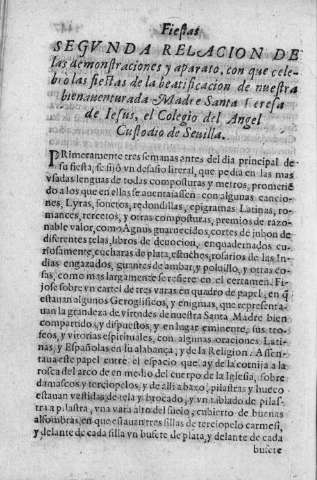 Fiestas
SEGVNDA RELACION DE
las demonstraciones y aparato, con que cele-
brò las fiestas de la beatificacion de nuestra
bienauenturada Madre Santa Teresa
de Iesus, el Colegio del Angel
Custodio de Seuilla.
PRimeramente tres semanas antes del dia principal de-
su fiesta, se fijò vn desafio literal, que pedia en las mas
vsadas lenguas de todas composturas y metros, prometiē
do a los que en ellas se auentaiassen con algunas cancio-
nes, Lyras, sonetos, redondillas, epigramas Latinas, ro-
mances, tercetos, y otras composturas, premios de razo-
nable valor, como Agnus guarnecidos, cortes de jubon de
diferentes telas, libros de deuocion, enquadernados cu-
riosamente, cucharas de plata, estuches, rosarios de las In-
dias engazados, guantes de ambar, y poluillo, y otras co-
sas, como mas largamente se refiere en el certamen. Fi-
jose sobre vn cartel de tres varas en quadro de papel, en q̄
estauan algunos Geroglificos, y enigmas, que representa-
uan la grandeza de virtudes de nuestra Santa Madre bien
compartidos, y dispuestos, y en lugar eminente, sus tro-
feos, y vitorias espirituales, con algunas oraciones Lati-
nas, y Españolas en su alabança, y de la Religion. Assen-
taua este papel entre el espacio que ay de la cornija a la
rosca del arco de en medio del cuerpo de la Iglesia, sobre
damascos y terciopelos, y de alli abaxo, pilastras y hueco
estauan vestidas de tela y brocado, y vn tablado de pilas-
tra a pilastra, vna vara alto del suelo, cubierto de buenas
alfombras, en que estauan tres sillas de terciopelo carmesi,
y delante de cada silla vn bufete de plata, y delante de cada
bufete